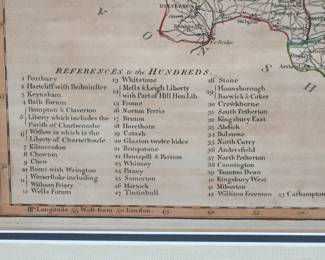 DULVERTON
REFERENCES to the HUNDREDS.
1 Portbury
2 Hartcliff with Bedminster
3 Keynsham
4 Bath Forum
Hampton & Claverton
5 Liberty which includes the
Parish of Charlescombe
6 Wellow in which is the
Liberty of Charterhouse
7 Kilmersdon
8 Chewton
9 Chew
10 Brent with Wrington
11 Winterstoke including
Witham Friary
12 Wells Forum
13 Whitstone
14 Mells & Leigh Liberty
with Part of Hill Hou. Lib.
15 Frome
16 Norton Ferris
17 Bruton
18 Horethorn
19 Catash
20 Glaston twelve hides
21 Brempstone
22 Huntspill & Puriton
23 Whitney
24 Pitney
25 Somerton
26 Martock
27 Tintinhull
28 Stone
29 Houndsborough
Barwick & Coker
30 Crewkherne
31 South Petherton
32 Kingsbury East
33 Abdick
34 Bulstone
35 North Curry
36 Andersfield
37 North Petherton
38 Cannington
39 Taunton Dean
40 Kingsbury West
41 Milverton
42 William Freeman
43 Carhampton
Longitude 55 West from 50 London